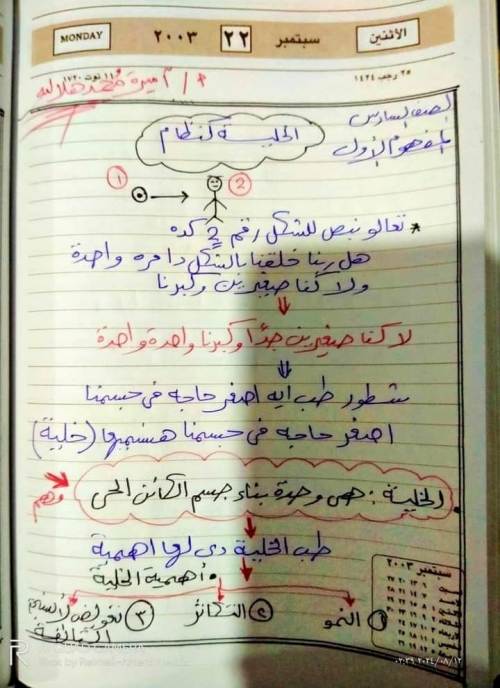 MONDAY ٢٠٠٣ ٢٢ سبتمبر الاثنين
٢٥ رجب ١٤٢٤
١١ توت ١٧٢٠
أ / أميرة محمد هلاليه
لصف السادس
المفهوم الأول
الخلية كنظام
① ②
* تعالو نبص للشكل رقم 2 كده
هل ربنا خلقنا بالشكل دا مره واحدة
ولا كنا صغيرين وكبرنا
لا كنا صغيرين جدًا وكبرنا واحدة واحدة
شطور طب ايه اصغر حاجه فى جسمنا
اصغر حاجه فى جسمنا هنسميها (خلية)
مهم
الخلية : هى وحدة بناء جسم الكائن الحى
طب الخلية دى لها اهمية
أهمية الخلية
① النمو ② التكاثر ③ تعويض الأنسجة
التالفة
سبتمبر ٢٠٠٣